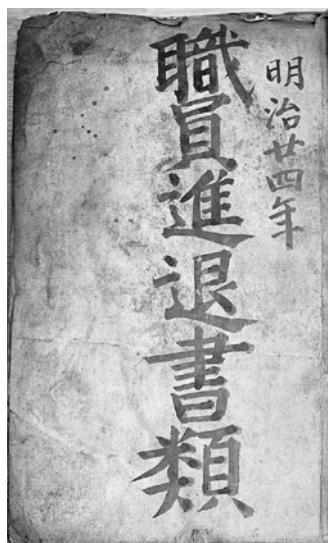 明治廿四年
職員進退書類